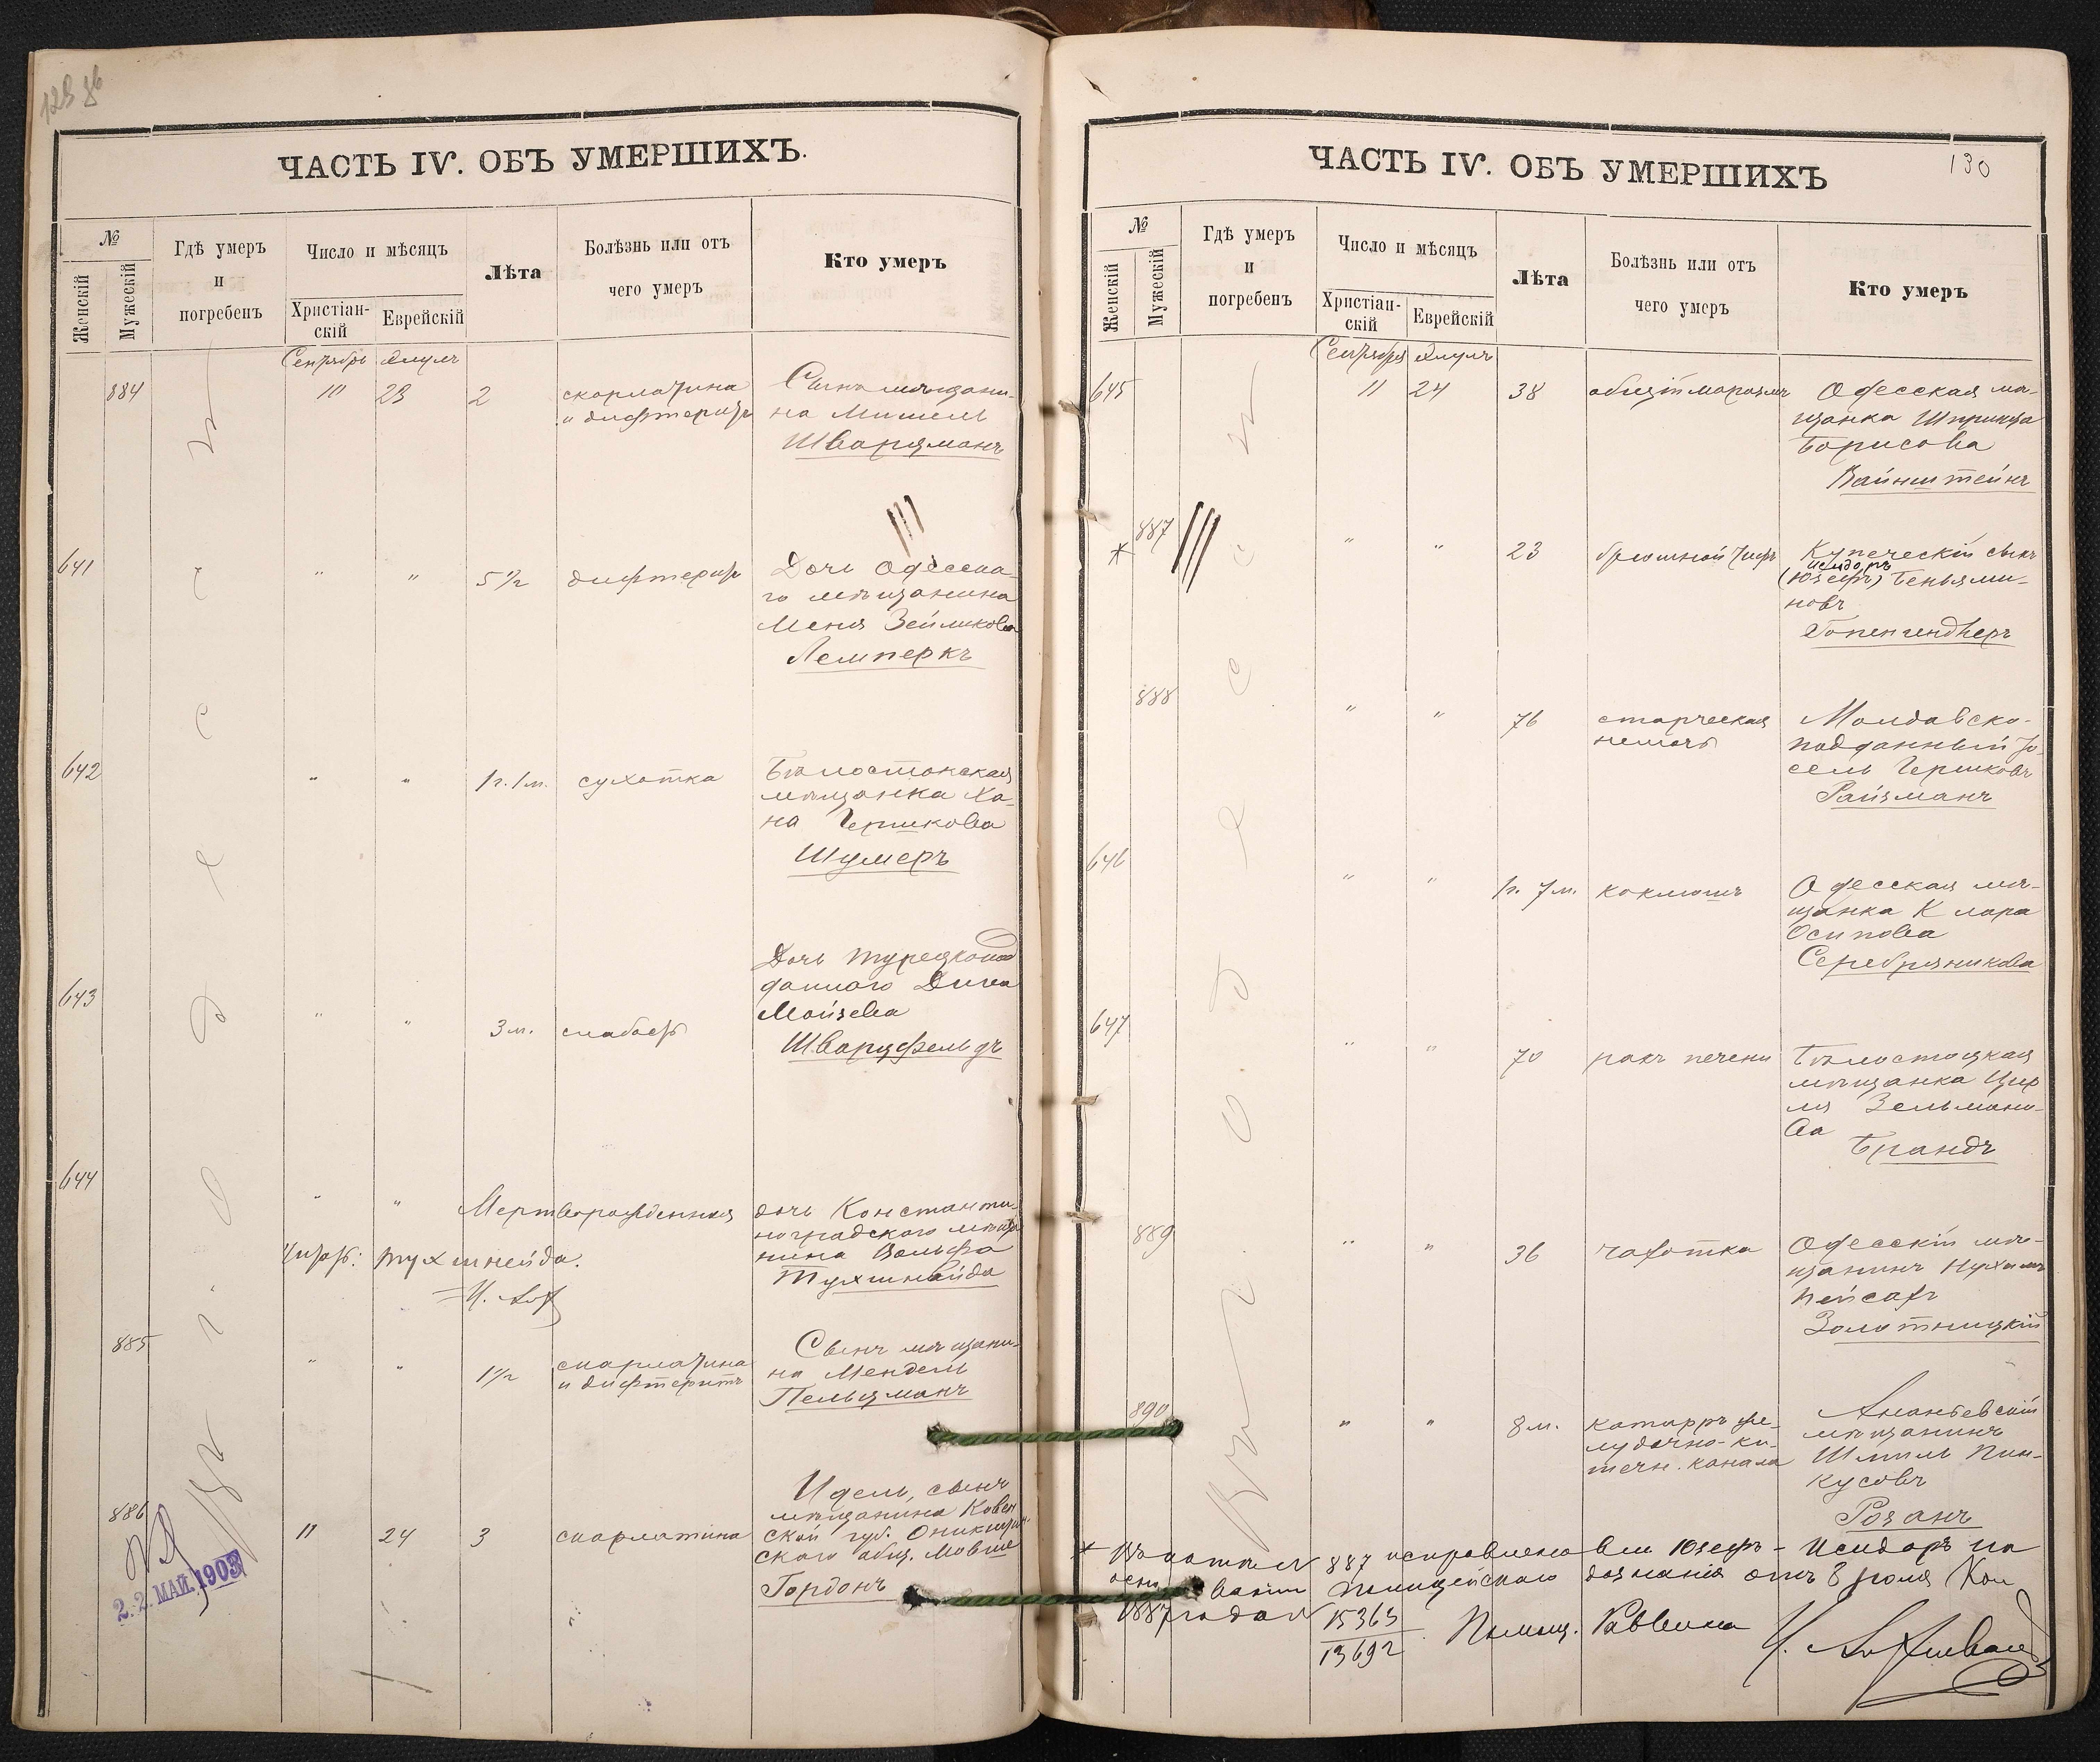 ЧАСТЬ IV. ОБЪ УМЕРШИХЪ.
№
Женскій
Мужескій
Гдѣ умеръ
и
погребенъ
Число и мѣсяцъ
Христіан-
скій
Еврейскій
Лѣта
Болѣзнь или отъ
чего умеръ
Кто умеръ
Сентябрь Элулъ
884 11 23 2 скарлатина
и дифтеритъ
Сынъ мѣщани-
на
Шварцманъ
641 " " 5 1/2 дифтеритъ
Дочь Одесска-
го мѣщанина
Меня Зейликова
Лемперкъ
642 " " 1 г. 1 м. сухотка
Бѣлостокская
мѣщанка Ха-
на Гершкова
Шумеръ
643 " " 3 м. слабость
Дочь турецкопод
даннаго
Мойзева
Шварцфельдъ
644 " " Мертворожденная
дочь Константи-
ноградскаго мѣща
нина Вольфа
Тухшнайда
тухшнейда.
885 " " 1 1/2 скарлатина
и дифтеритъ
Сынъ мѣщани-
на Мендель
Пельцманъ
886 11 24 3 скарлатина
Идель, сынъ
мѣщанина Ковен
ской губ.
скаго общ. Мовше
Гордонъ
2. 2. МАЙ 1903
ЧАСТЬ IV. ОБЪ УМЕРШИХЪ
130
№
Женскій
Мужескій
Гдѣ умеръ
и
погребенъ
Число и мѣсяцъ
Христіан-
скій
Еврейскій
Лѣта
Болѣзнь или отъ
чего умеръ
Кто умеръ
Сентябрь Элулъ
645 11 24 38
Одесская мѣ-
щанка Шпринца
Борисова
Вайнштейнъ
* 887 " " 23 брюшной тифъ
Купеческій сынъ
Исидоръ
(Юзефъ) Беньями-
новъ
Гопенгендлеръ
888 " " 76 старческая
немочь
Молдавско-
подданный Іо-
сель Гершковъ
Райзманъ
646 " " 1 г. 7 м. коклюшъ
Одесская мѣ-
щанка Клара
Осипова
Серебряникова
647 " " 70 ракъ печени
Бѣлостоцкая
мѣщанка Цир
ля Зельмано-
ва
Брандъ
889 " " 36 чахотка
Одесскій мѣ-
щанинъ Нухимъ
Пейсахъ
Золотницкій
890 " " 8 м. катарръ же-
лудочно-ки-
шечн. канала
Ананьевскій
мѣщанинъ
Шмиль Пин-
кусовъ
Розанъ
* 887 исправлено Юзефъ - Исидоръ на
основаніи полицейскаго дознанія отъ 8
1887 года №
15363
13692
Помощ. Раввина